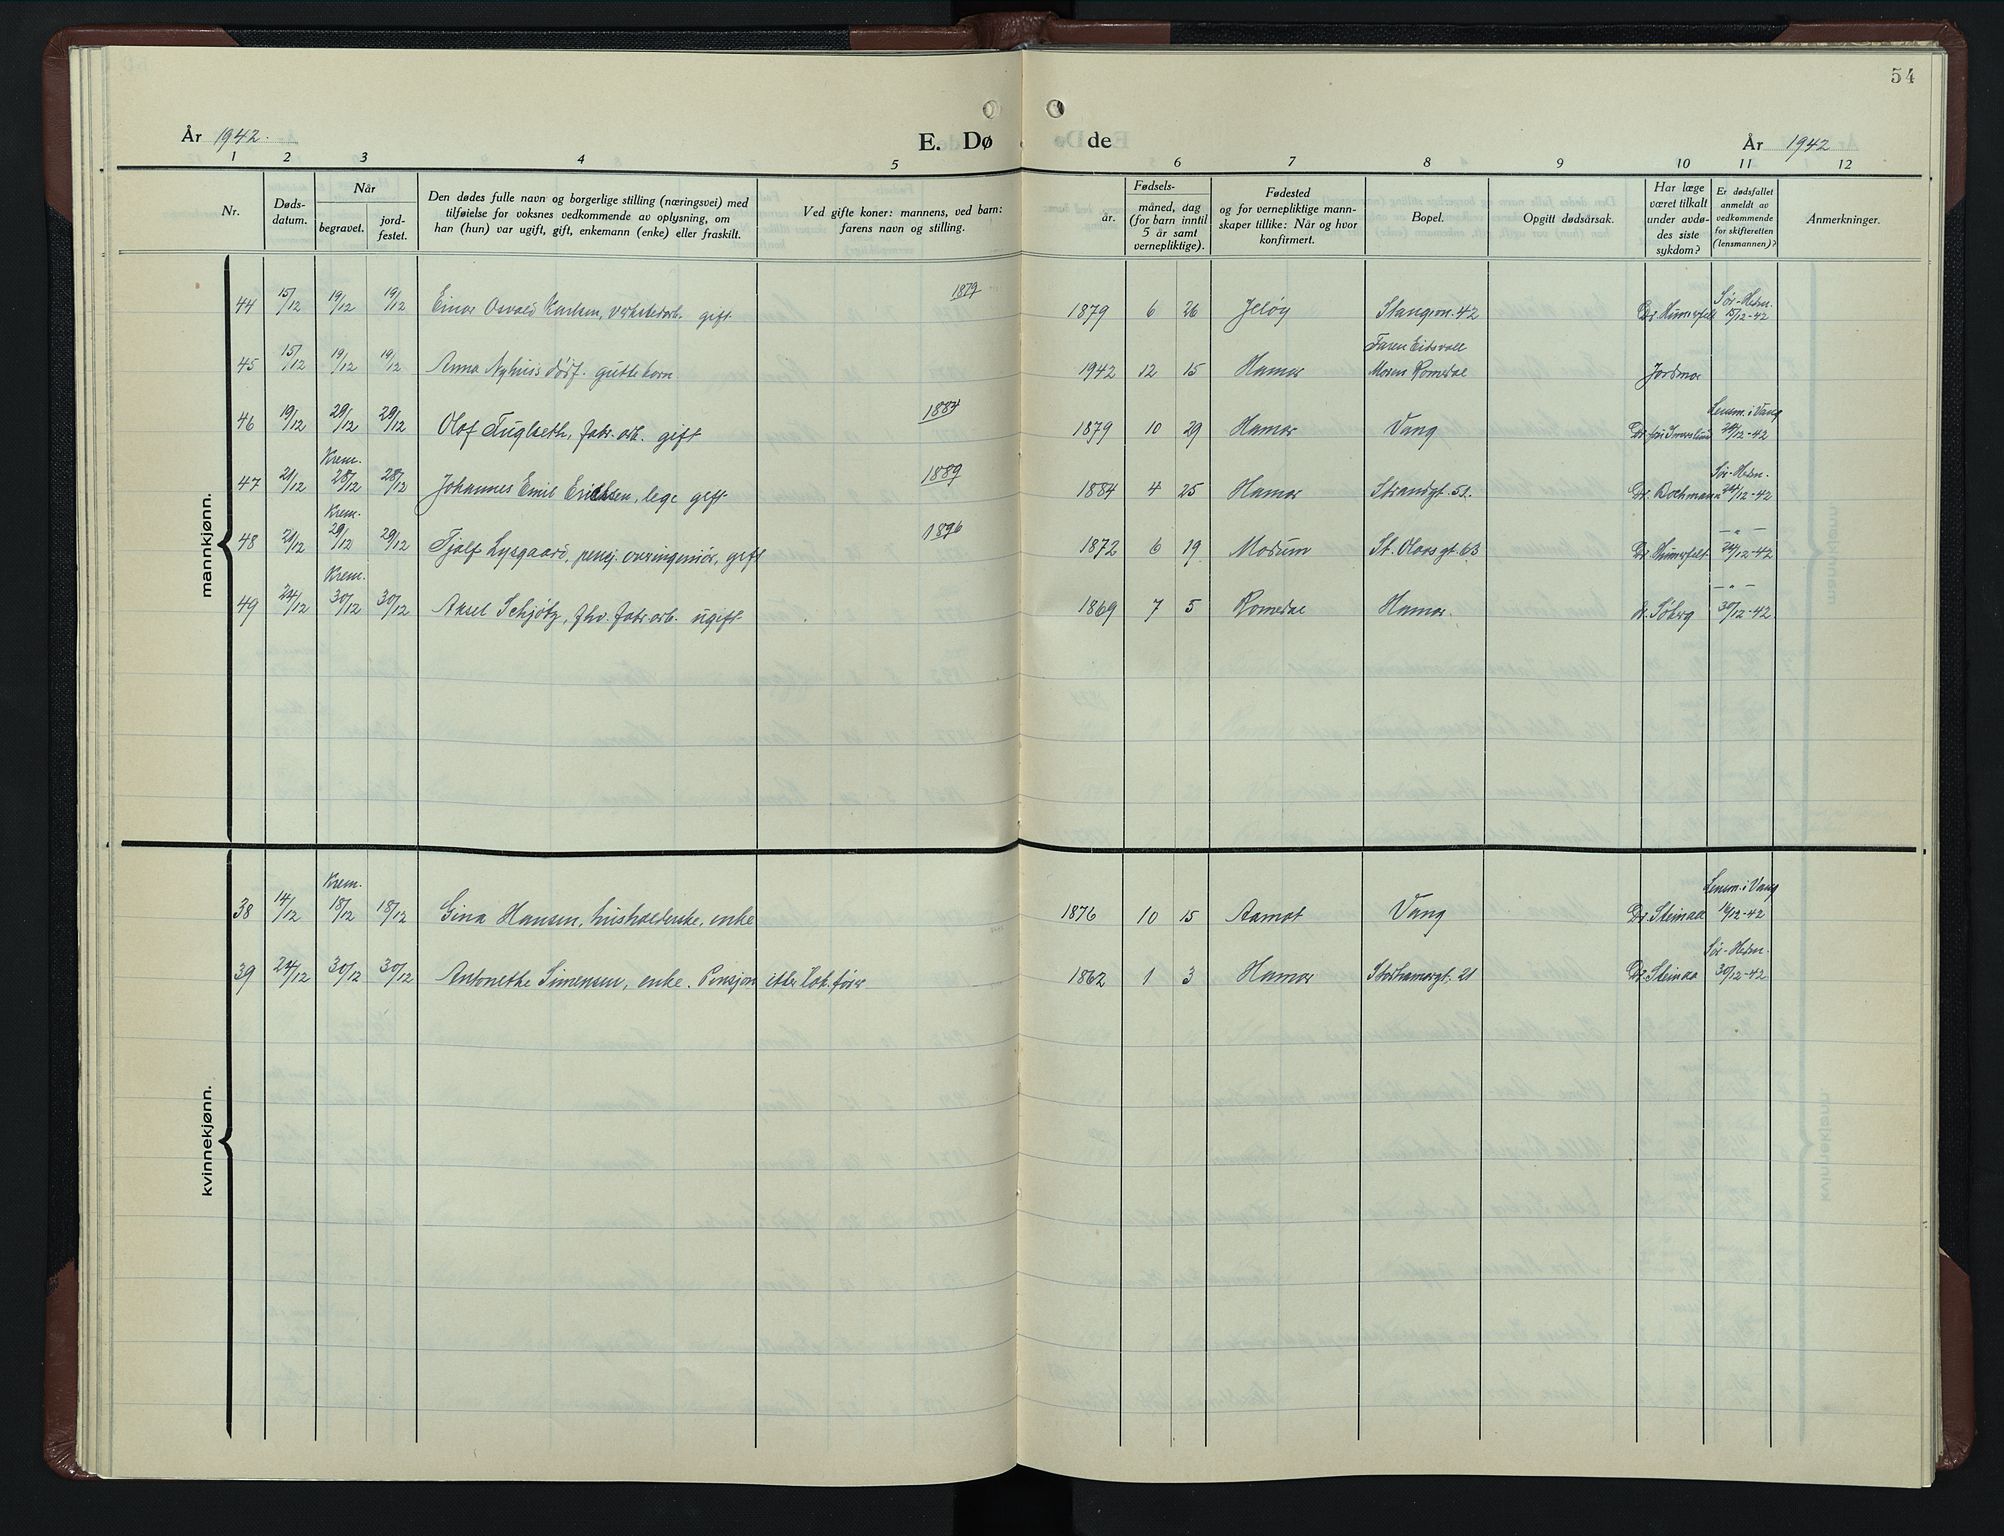 54
År 1942. E. Døde År 1942
1 2 3 4 5 6 7 8 9 10 11 12
Nr.
Døds-
datum.
Når
begravet.
jord-
festet.
Den dødes fulle navn og borgerlige stilling (næringsvei) med
tilføielse for voksnes vedkommende av oplysning, om
han (hun) var ugift, gift, enkemann (enke) eller fraskilt.
Ved gifte koner: mannens, ved barn:
farens navn og stilling.
Fødsels-
år.
måned, dag
(for barn inntil
5 år samt
vernepliktige).
Fødested
og for vernepliktige mann-
skaper tillike: Når og hvor
konfirmert.
Bopel.
Opgitt dødsårsak.
Har læge
været tilkalt
under avdø-
des siste
sykdom?
Er dødsfallet
anmeldt av
vedkommende
for skifteretten
(lensmannen)?
Anmerkninger.
mannkjønn.
1879 Sør-Hedm.
44 15/12 19/12 19/12 Einar Osvald Karlsen, verkstedarb. gift 1879 6 26 Jeløy Stangevn. 42 15/12-42
Faren Eidsvoll
45 15/12 19/12 19/12 Anna Nyhuss dødf. guttebarn 1942 12 15 Hamar Moren Romedal Jordmor
1884 Lensm. i Vang
46 19/12 29/12 29/12 Olaf Fuglseth, fabr. arb. gift 1879 10 29 Hamar Vang 12-42
Krem. 1889 Sør-Hedm.
47 21/12 28/12 28/12 Johannes Emil Erichsen, lege gift 1884 4 25 Hamar Strandgt. 51. Dr. Bochmann 24/12-42
Krem. 1896 — „ —
48 21/12 29/12 29/12 Tjalf Lysgaard, pensj. overingeniør, gift 1872 6 19 Modum St. Olavs gt. 63 24/12-42
Krem. — „ —
49 24/12 30/12 30/12 Aksel Schjøtz, fhv. fabr. arb. ugift 1869 7 5 Romedal Hamar. dr. Søberg 30/12-42
kvinnekjønn.
Krem. Lensm. i Vang
38 14/12 18/12 18/12 Gina Hansen, husholderske, enke 1876 10 15 Aamot Vang Dr. Steinaa 16/12-42
Sør-Hedm.
39 24/12 30/12 30/12 Antonette Simensen, enke. Pensjon etter lok. fører 1862 1 3 Hamar Storhamargt. 21 Dr. Steinaa 30/12-42